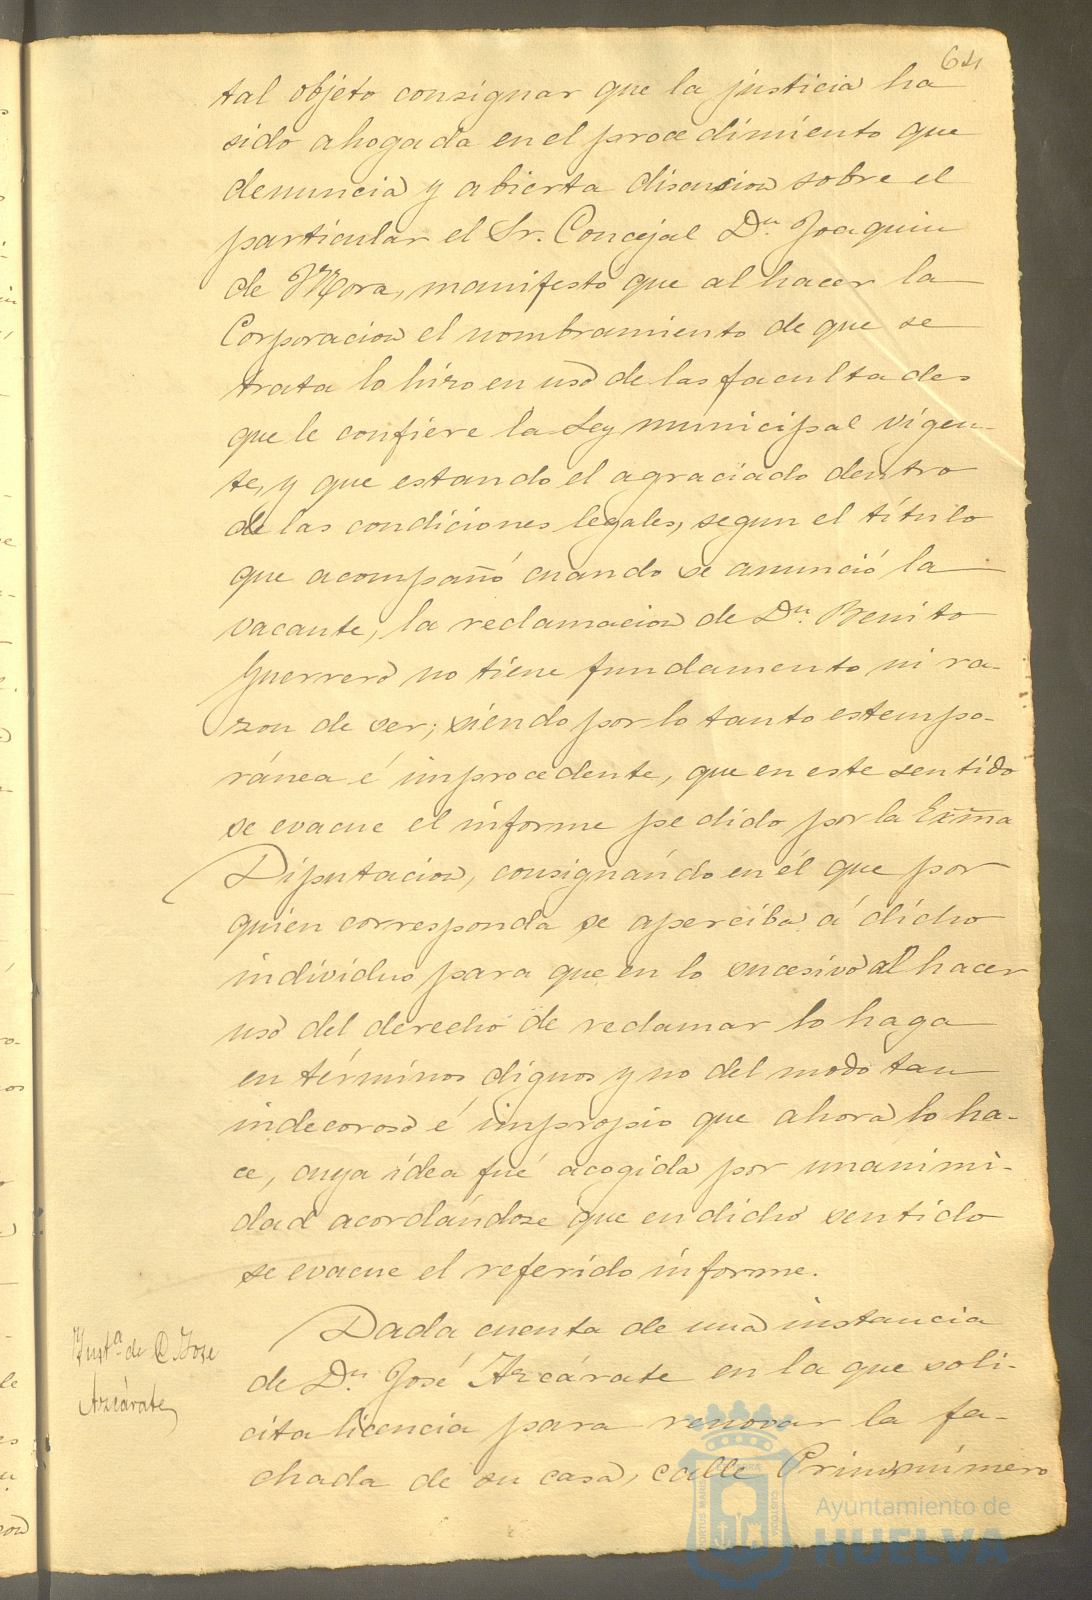 64
tal objeto consignar que la justicia ha
sido ahogada en el procedimiento que
denuncia y abierta discusion sobre el
particular el Sr. Concejal Dn. Joaquin
de Mora, manifestó que al hacer la
Corporacion el nombramiento de que se
trata lo hizo en uso de las facultades
que le confiere la Ley municipal vigen-
te, y que estando el agraciado dentro
de las condiciones legales, segun el título
que acompañó cuando se anunció la
vacante, la reclamacion de Dn. Benito
Guerrero no tiene fundamento ni ra-
zon de ser; siendo por lo tanto estempo-
ránea é improcedente, que en este sentido
se evacue el informe pedido por la Exma
Diputacion, consignándo en él que por
quien corresponda se aperciba á dicho
individuo para que en lo sucesivo al hacer
uso del derecho de reclamar lo haga
en términos dignos y no del modo tan
indecoroso é impropio que ahora lo ha-
ce, cuya idea fué acogida por unanimi-
dad acordándose que en dicho sentido
se evacue el referido informe.
Insta. de D. Jose
Azcárate
Dada cuenta de una instancia
de Dn. José Azcárate en la que soli-
cita licencia para renovar la fa-
chada de su casa, calle Prim número
Ayuntamiento de
HUELVA